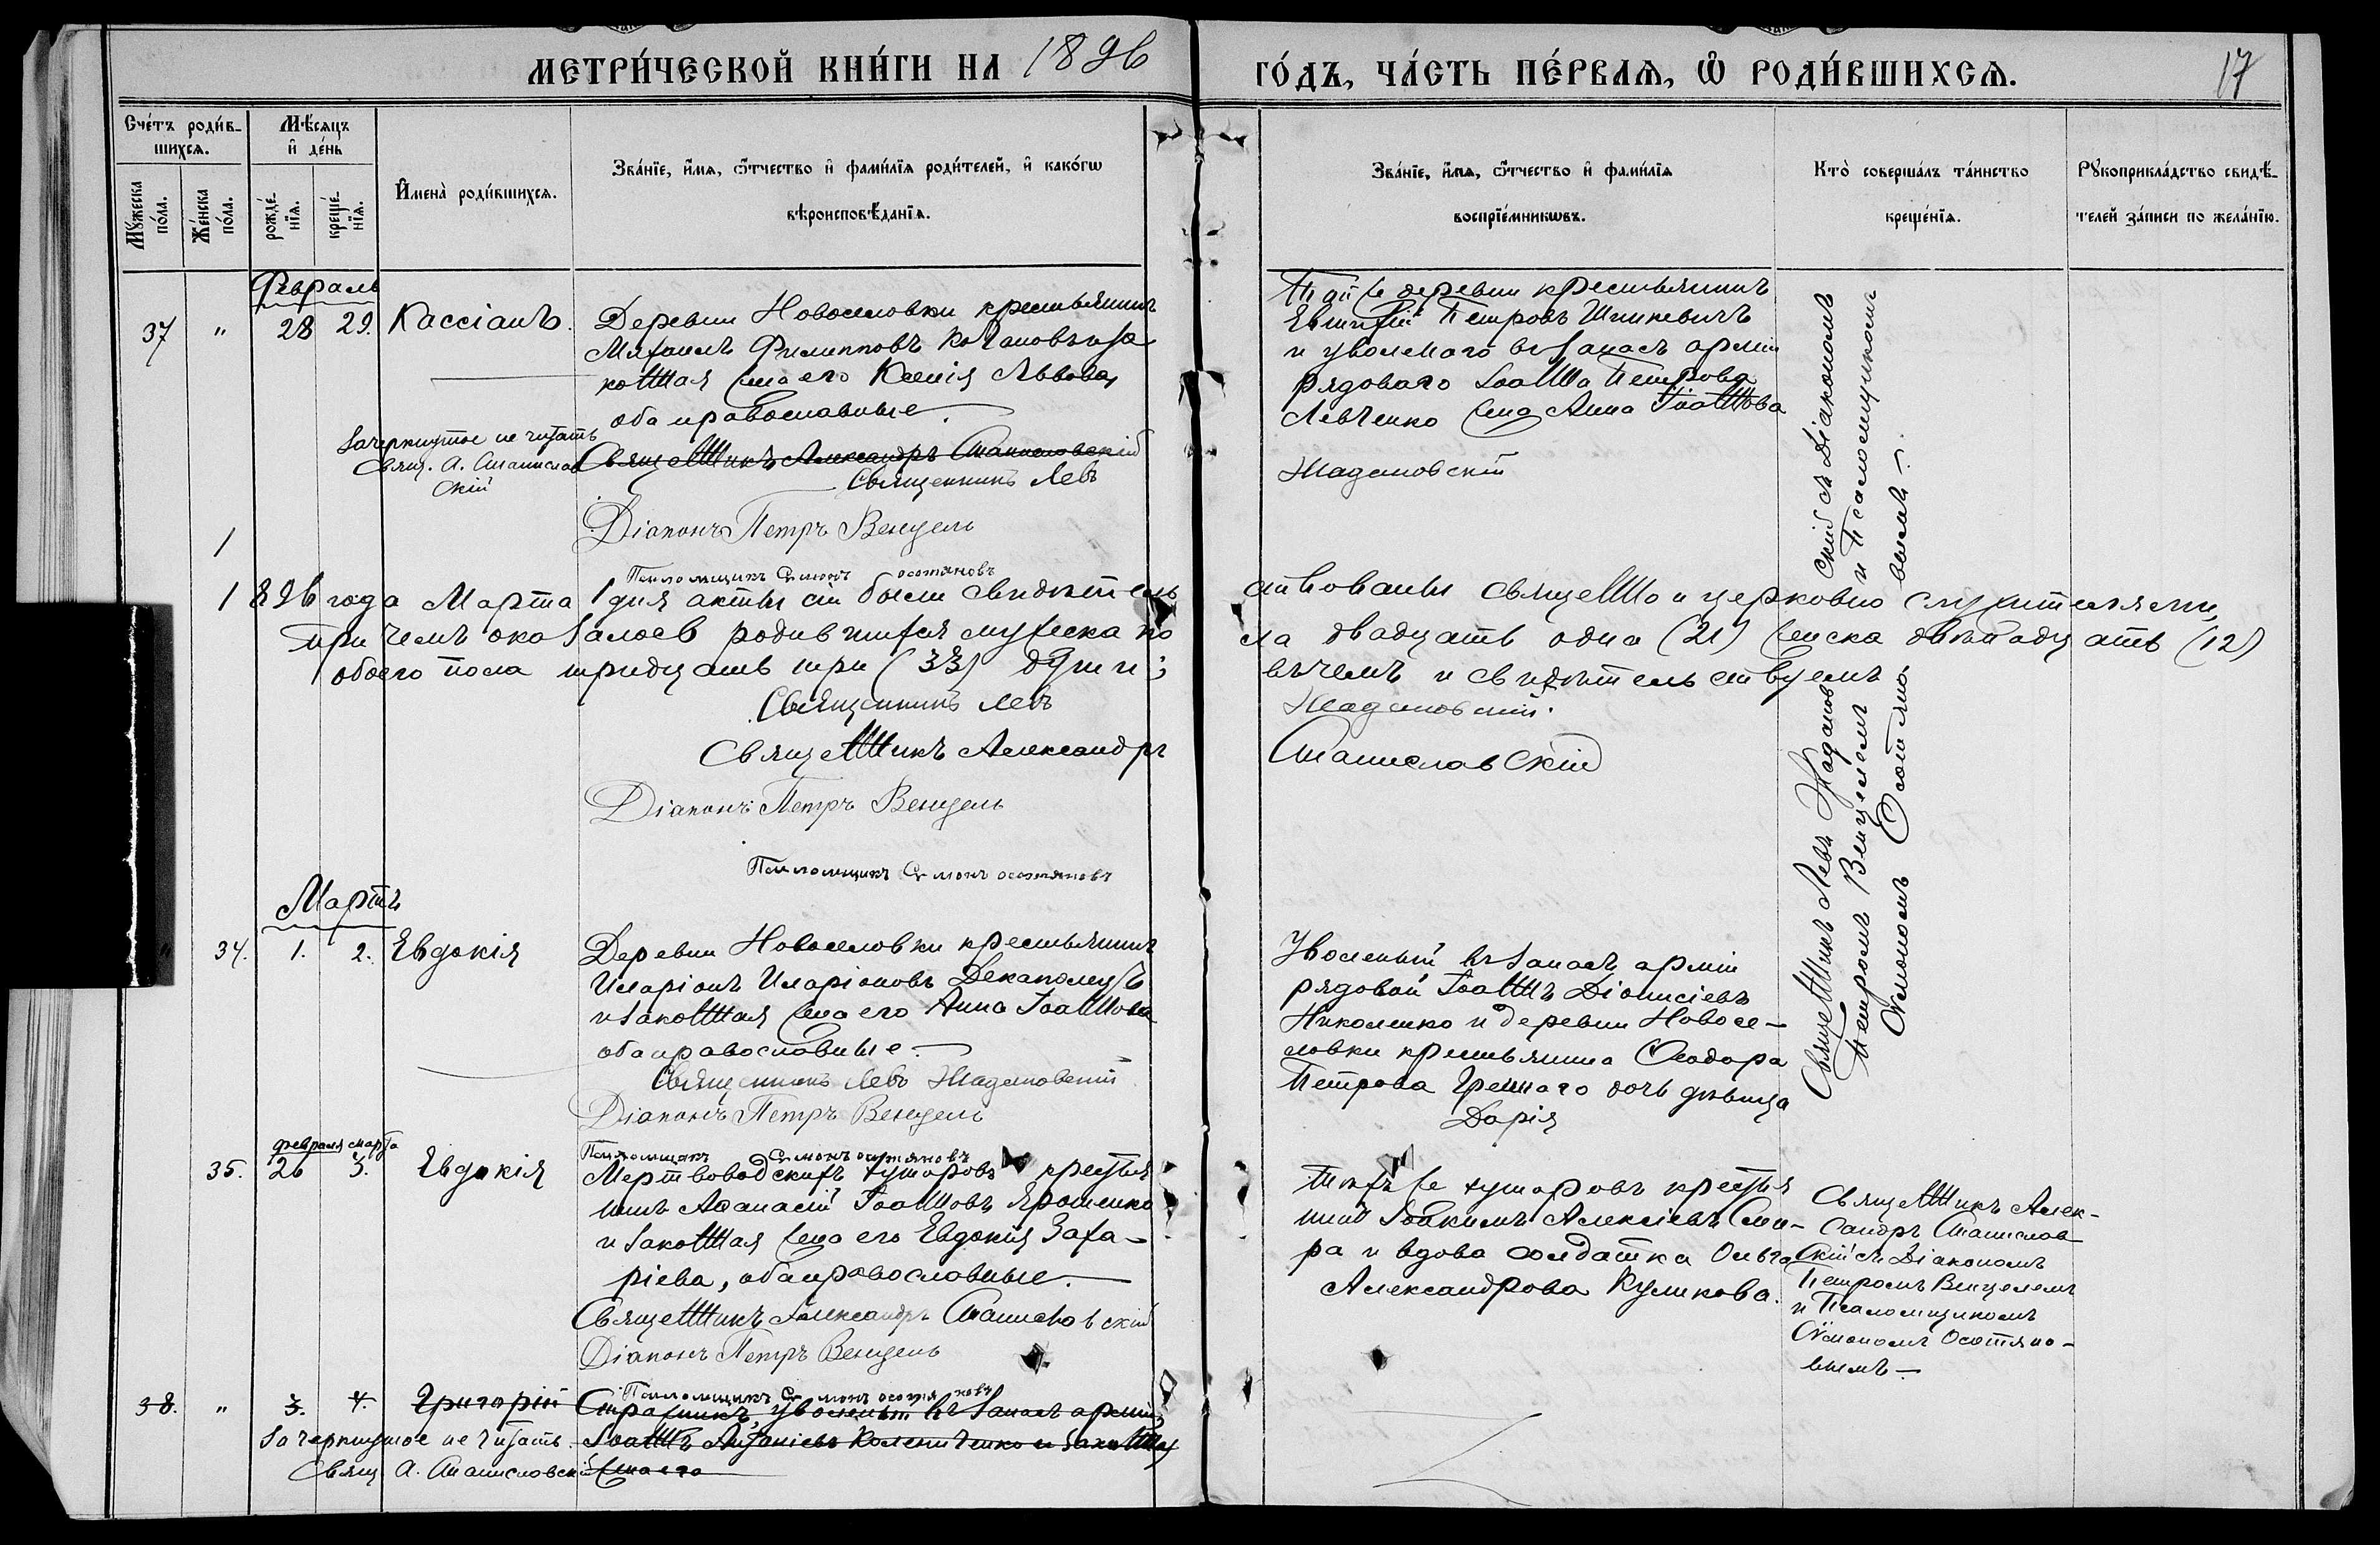 МЕТРИ́ЧЕСКОЙ КНИ́ГИ НА 1896 ГО́ДЪ, ЧА́СТЬ ПЕ́РВАЯ, Ѽ РОДИ́ВШИХСЯ.
17
Сче́тъ роди́в-
шихся.
Мѣ́сяцъ
и҆ де́нь
Му́жеска
по́ла.
Же́нска
по́ла.
рожде́-
нїя.
креще́-
нїя.
И҆мена̀ роди́вшихся.
Зва́нїе, и҆́мя, ѻ҆́тчество и҆ фами́лїя роди́телей, и҆ како́гѡ
вѣроисповѣ́данїя.
Зва́нїе, и҆́мя, ѻ҆́тчество и҆ фами́лїя
воспрїе́мникѡвъ.
Кто̀ соверша́лъ та́инство
креще́нїя.
Рꙋкоприкла́дство свидѣ́-
телей за́писи по жела́нїю.
Февраль
37 " 28 29. Кассіанъ.
Деревни Новоселовки крестьянинъ
Михаилъ Филипповъ
законная жена его Ксенія Львова,
оба православные.
Зачеркнутое не читать
Свящ. А. Станислав
скій
Священникъ Александръ Станиславскій
Священникъ Левъ
Діаконъ Петръ Венцель
Псаломщикъ Сѵмонъ Осотяновъ
Той же деревни крестьянинъ
Евтихій Петровъ Шпикевичъ
и уволеннаго въ запасъ арміи
рядоваго Іоанна Петрова
Левченко жена Анна Іоаннова
Жадановскій
Священникъ Левъ Жаданов
скій съ Діакономъ
Петромъ Венцелемъ
и Псаломщикомъ
Сѵмономъ Осотяно-
вымъ.
1
1896 года Марта 1 дня акты сіи были свидѣтельствованы священно и церковно служителями,
при чемъ оказалось родившихся мужеска пола двадцать одна (21) женска двѣнадцать (12)
обоего пола тридцать три (33) души;
въ чемъ и свидѣтельствуемъ
Священникъ Левъ Жадановскій.
Священникъ Александръ Станиславскій
Діаконъ Петръ Венцель
Псаломщикъ Сѵмонъ Осотяновъ
Мартъ
" 34. 1. 2. Евдокія
Деревни Новоселовки крестьянинъ
Иларіонъ Иларіоновъ
и законная жена его Анна Іоаннова
оба православные.
Священникъ Левъ Жадановскій
Діаконъ Петръ Венцель
Псаломщикъ Сѵмонъ Осотяновъ
Уволенный въ запасъ арміи
рядовой Іоаннъ Діонисіевъ
Николенко и деревни Новосе-
ловки крестьянина Ѳеодора
Петрова Грешнаго дочь дѣвица
Дарія
февраля марта
35. 26 3. Евдокія
Мертвоводскихъ хуторовъ крестья
нинъ Аѳанасій Іоанновъ Ярошенко
и законная жена его Евдокія Заха-
ріева, оба православные.
Священникъ Александръ Станиславскій
Діаконъ Петръ Венцель
Псаломщикъ Сѵмонъ Осотяновъ
Тѣхъ же хуторовъ крестья
нинъ Іоакимъ Алексіевъ
и вдова солдатка Ольга
Александрова Куликова.
Священникъ Алек-
сандръ Станислав
скій съ Діакономъ
Петромъ Венцелемъ
и Псаломщикомъ
Сѵмономъ Осотяно-
вымъ.
38. " 3. 4. Григорій
Стражникъ, уволенный въ запасъ арміи,
Іоаннъ Коленченко и законная
жена его
Зачеркнутое не читать.
Свящ. А. Станиславскій